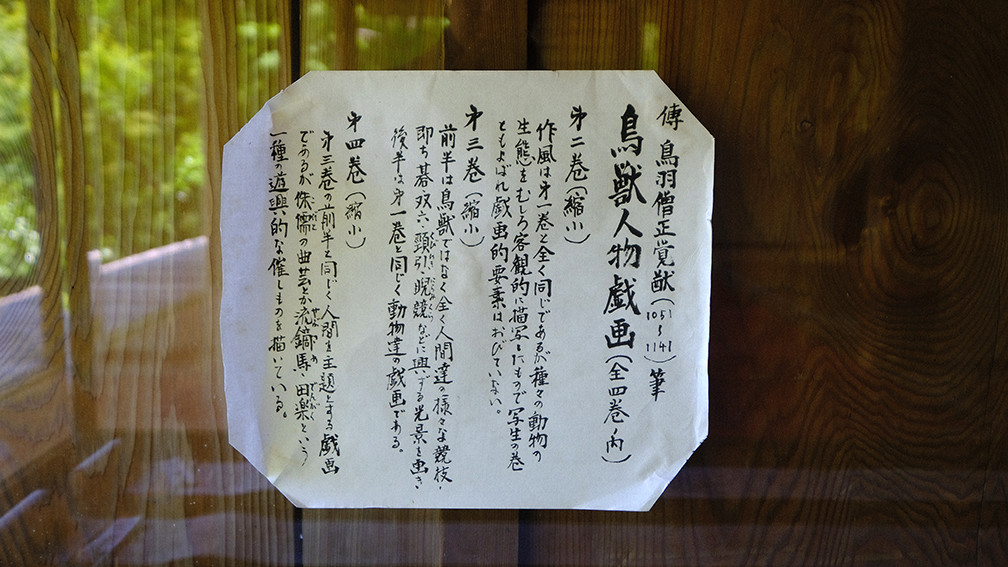 傳 鳥羽僧正覚猷(1051〜1141)筆
鳥獣人物戯画(全四巻ノ内)
才二巻(縮小)
作風は才一巻と全く同じであるが種々の動物の
生態をむしろ客観的に描写したもので写生の巻
ともよばれ戯画的要素はおびていない。
才三巻(縮小)
前半は鳥獣ではなく全く人間達の様々な競技、
即ち碁・双六・頸引・睨競などに興ずる光景を画き、
後半は才一巻と同じく動物達の戯画である。
才四巻(縮小)
才三巻の前半と同じく人間を主題とする戯画
であるが侏儒の曲芸とか流鏑馬、田楽という
一種の遊興的な催しものを描いている。